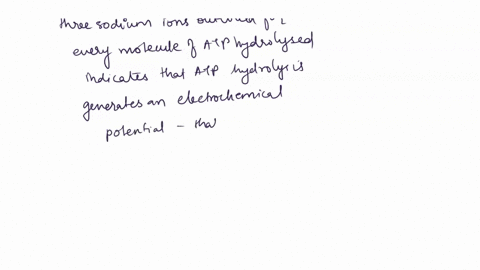 three sodium ions outward for
every molecule of ATP hydrolysed
indicates that ATP hydrolysis
generates an electrochemical
potential - tha